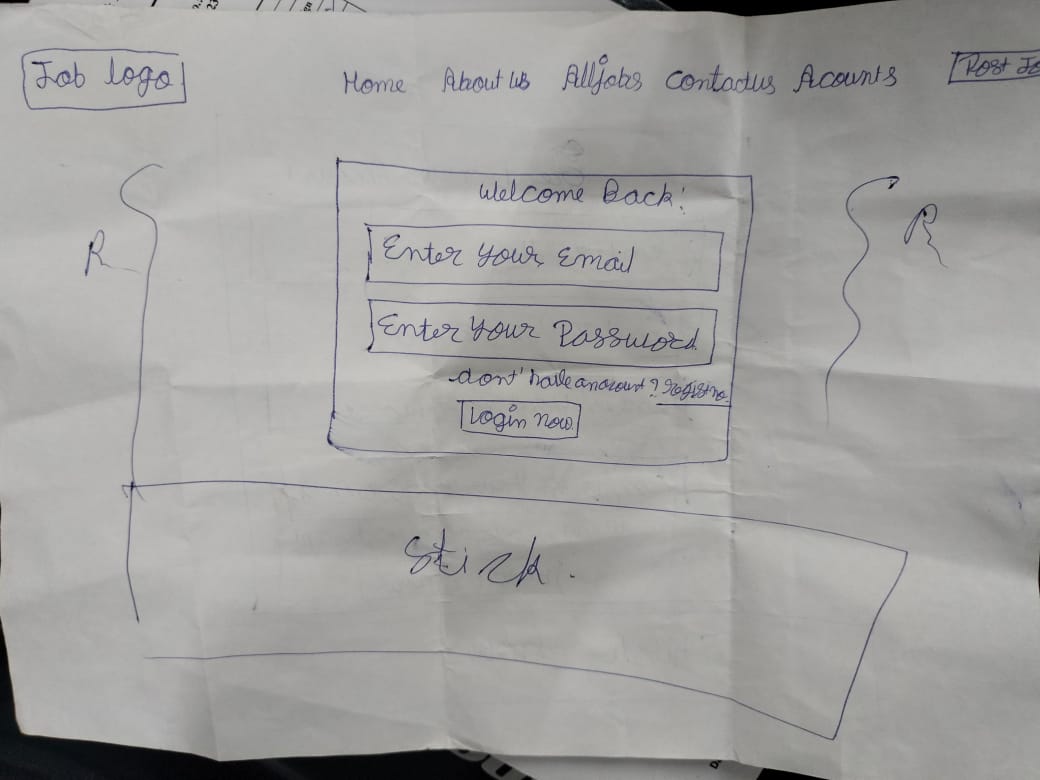 Job logo
Home About us Alljobs Contactus Acounts Post Jo
Welcome Back!
R
R
Enter Your Email
Enter Your Password
dont' have anacount?
Login now
Stick.